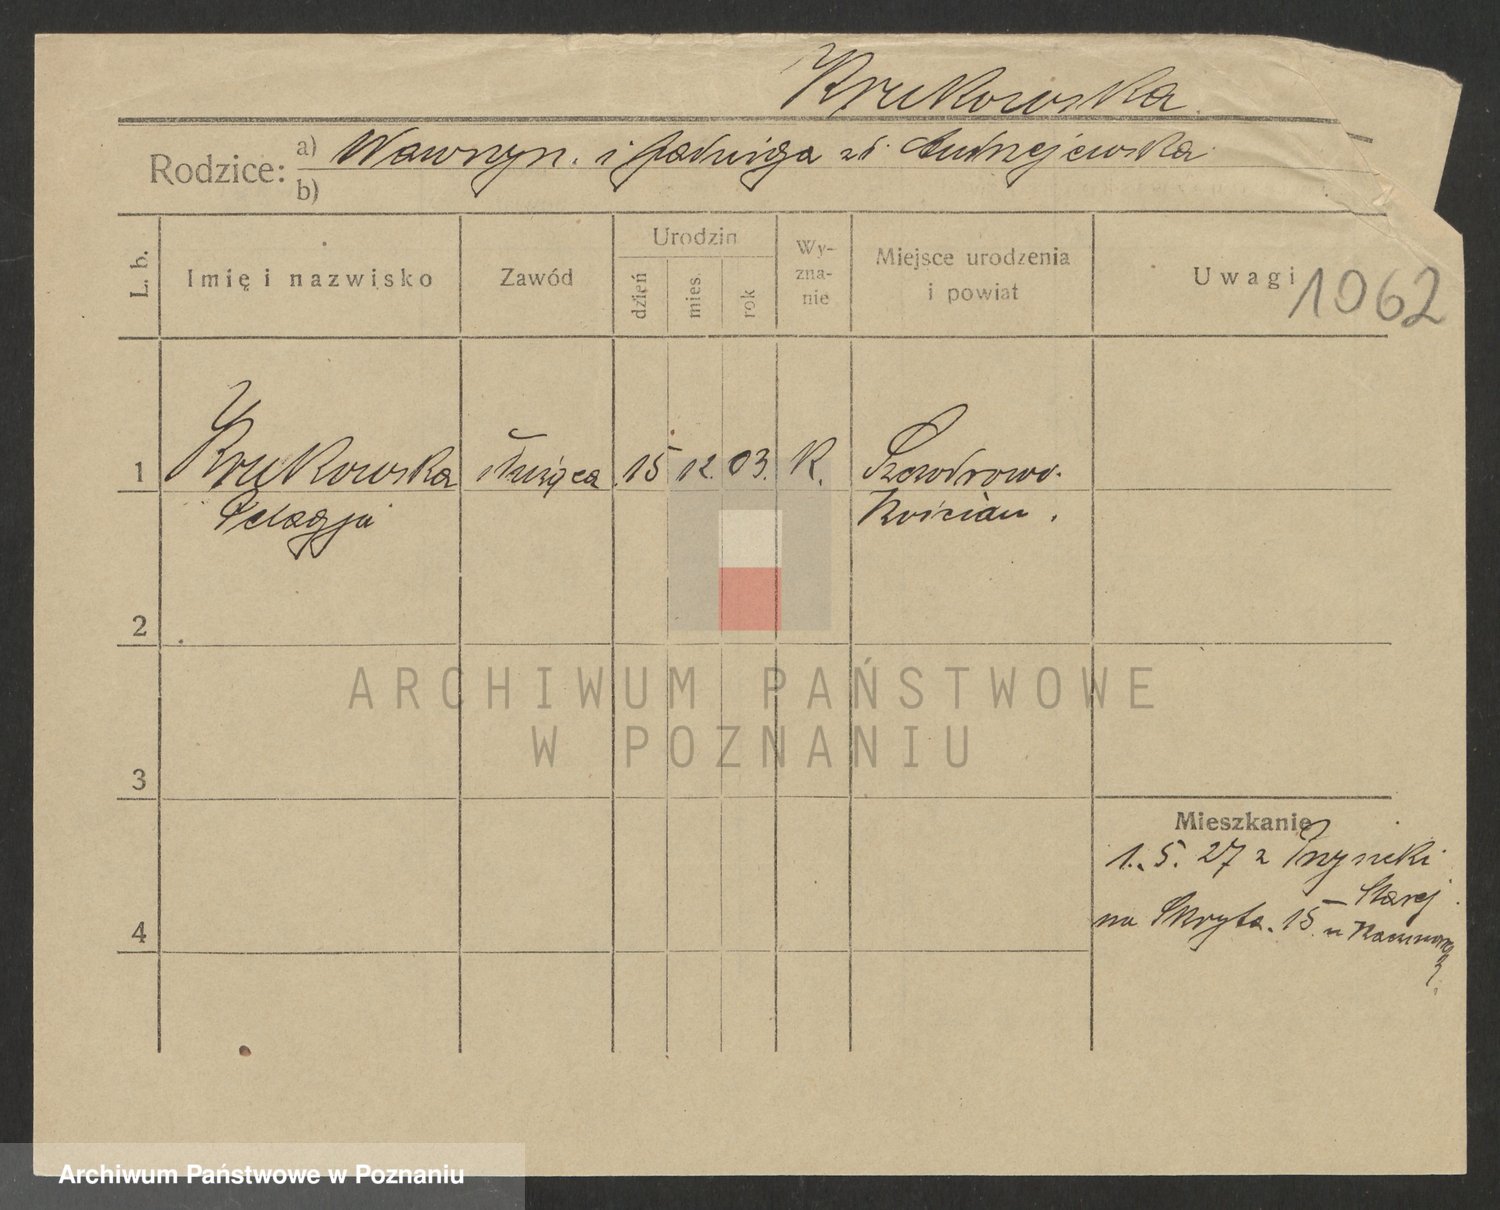 Krukowska
Rodzice: a) Wawrzyn. i Jadwiga zd. Andrzejewska
b)
L. b. Imię i nazwisko Zawód Urodzin dzień mies. rok Wy-zna-nie Miejsce urodzenia i powiat Uwagi 1062
1 Krukowska służąca 15 12. 03. K. Szczodrowo.
Pelagja Kościan.
2
ARCHIWUM PAŃSTWOWE
W POZNANIU
3
Mieszkanie
1. 5. 27 z
Starej
4 na Skryta. 15 u
Archiwum Państwowe w Poznaniu